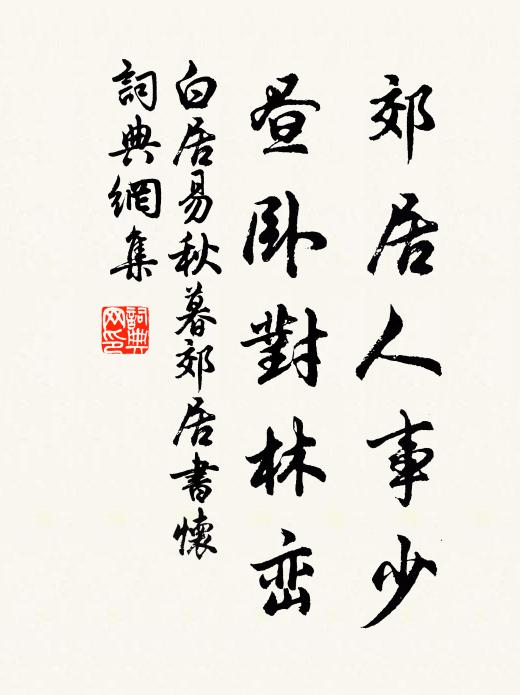 郊居人事少
昼卧對林峦
白居易秋暮郊居書懷
詞典網集
詞典网印